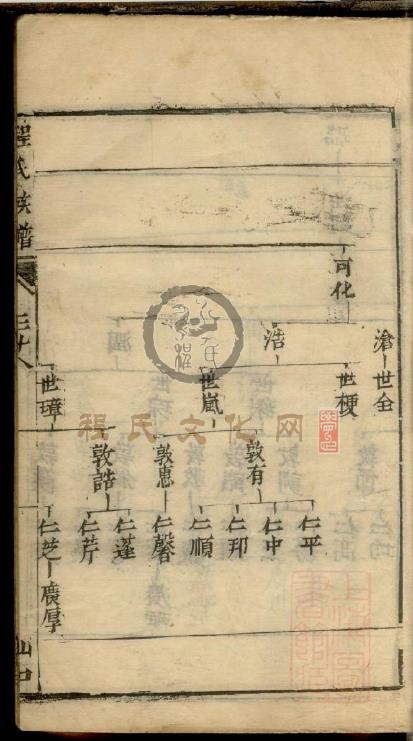 可化
滄 世全
浩
世梗
世嵐
世璋
敦有
敦惠
敦誥
仁平
仁中
仁邦
仁順
仁馨
仁蓬
仁芹
仁芝 廣厚
程氏族譜
程氏文化网
上海圖書館藏